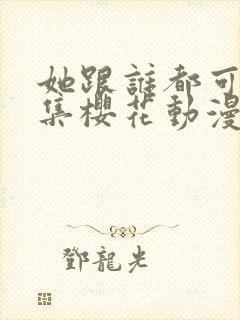 她跟誰都可
集櫻花動漫
鄧龍光